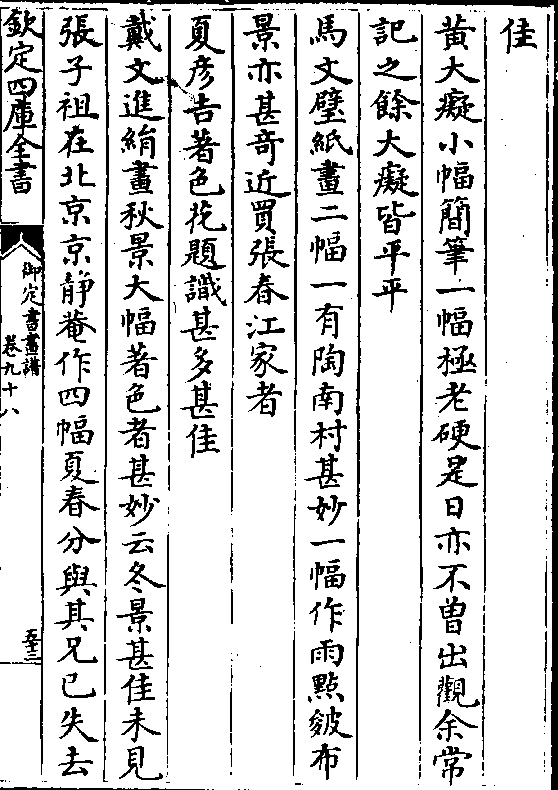 佳
黄大癡小幅簡筆一幅極老硬是日亦不曽出觀余常
記之餘大癡皆平平
馬文璧紙畫二幅一有陶南村甚妙一幅作雨點皴布
景亦甚竒近買張春江家者
夏彦吉著色花題識甚多甚佳
戴文進絹畫秋景大幅著色者甚妙云冬景甚佳未見
張子祖在北京京靜菴作四幅夏春分與其兄已失去
欽定四庫全書
御定書畫譜
卷九十八
五十三